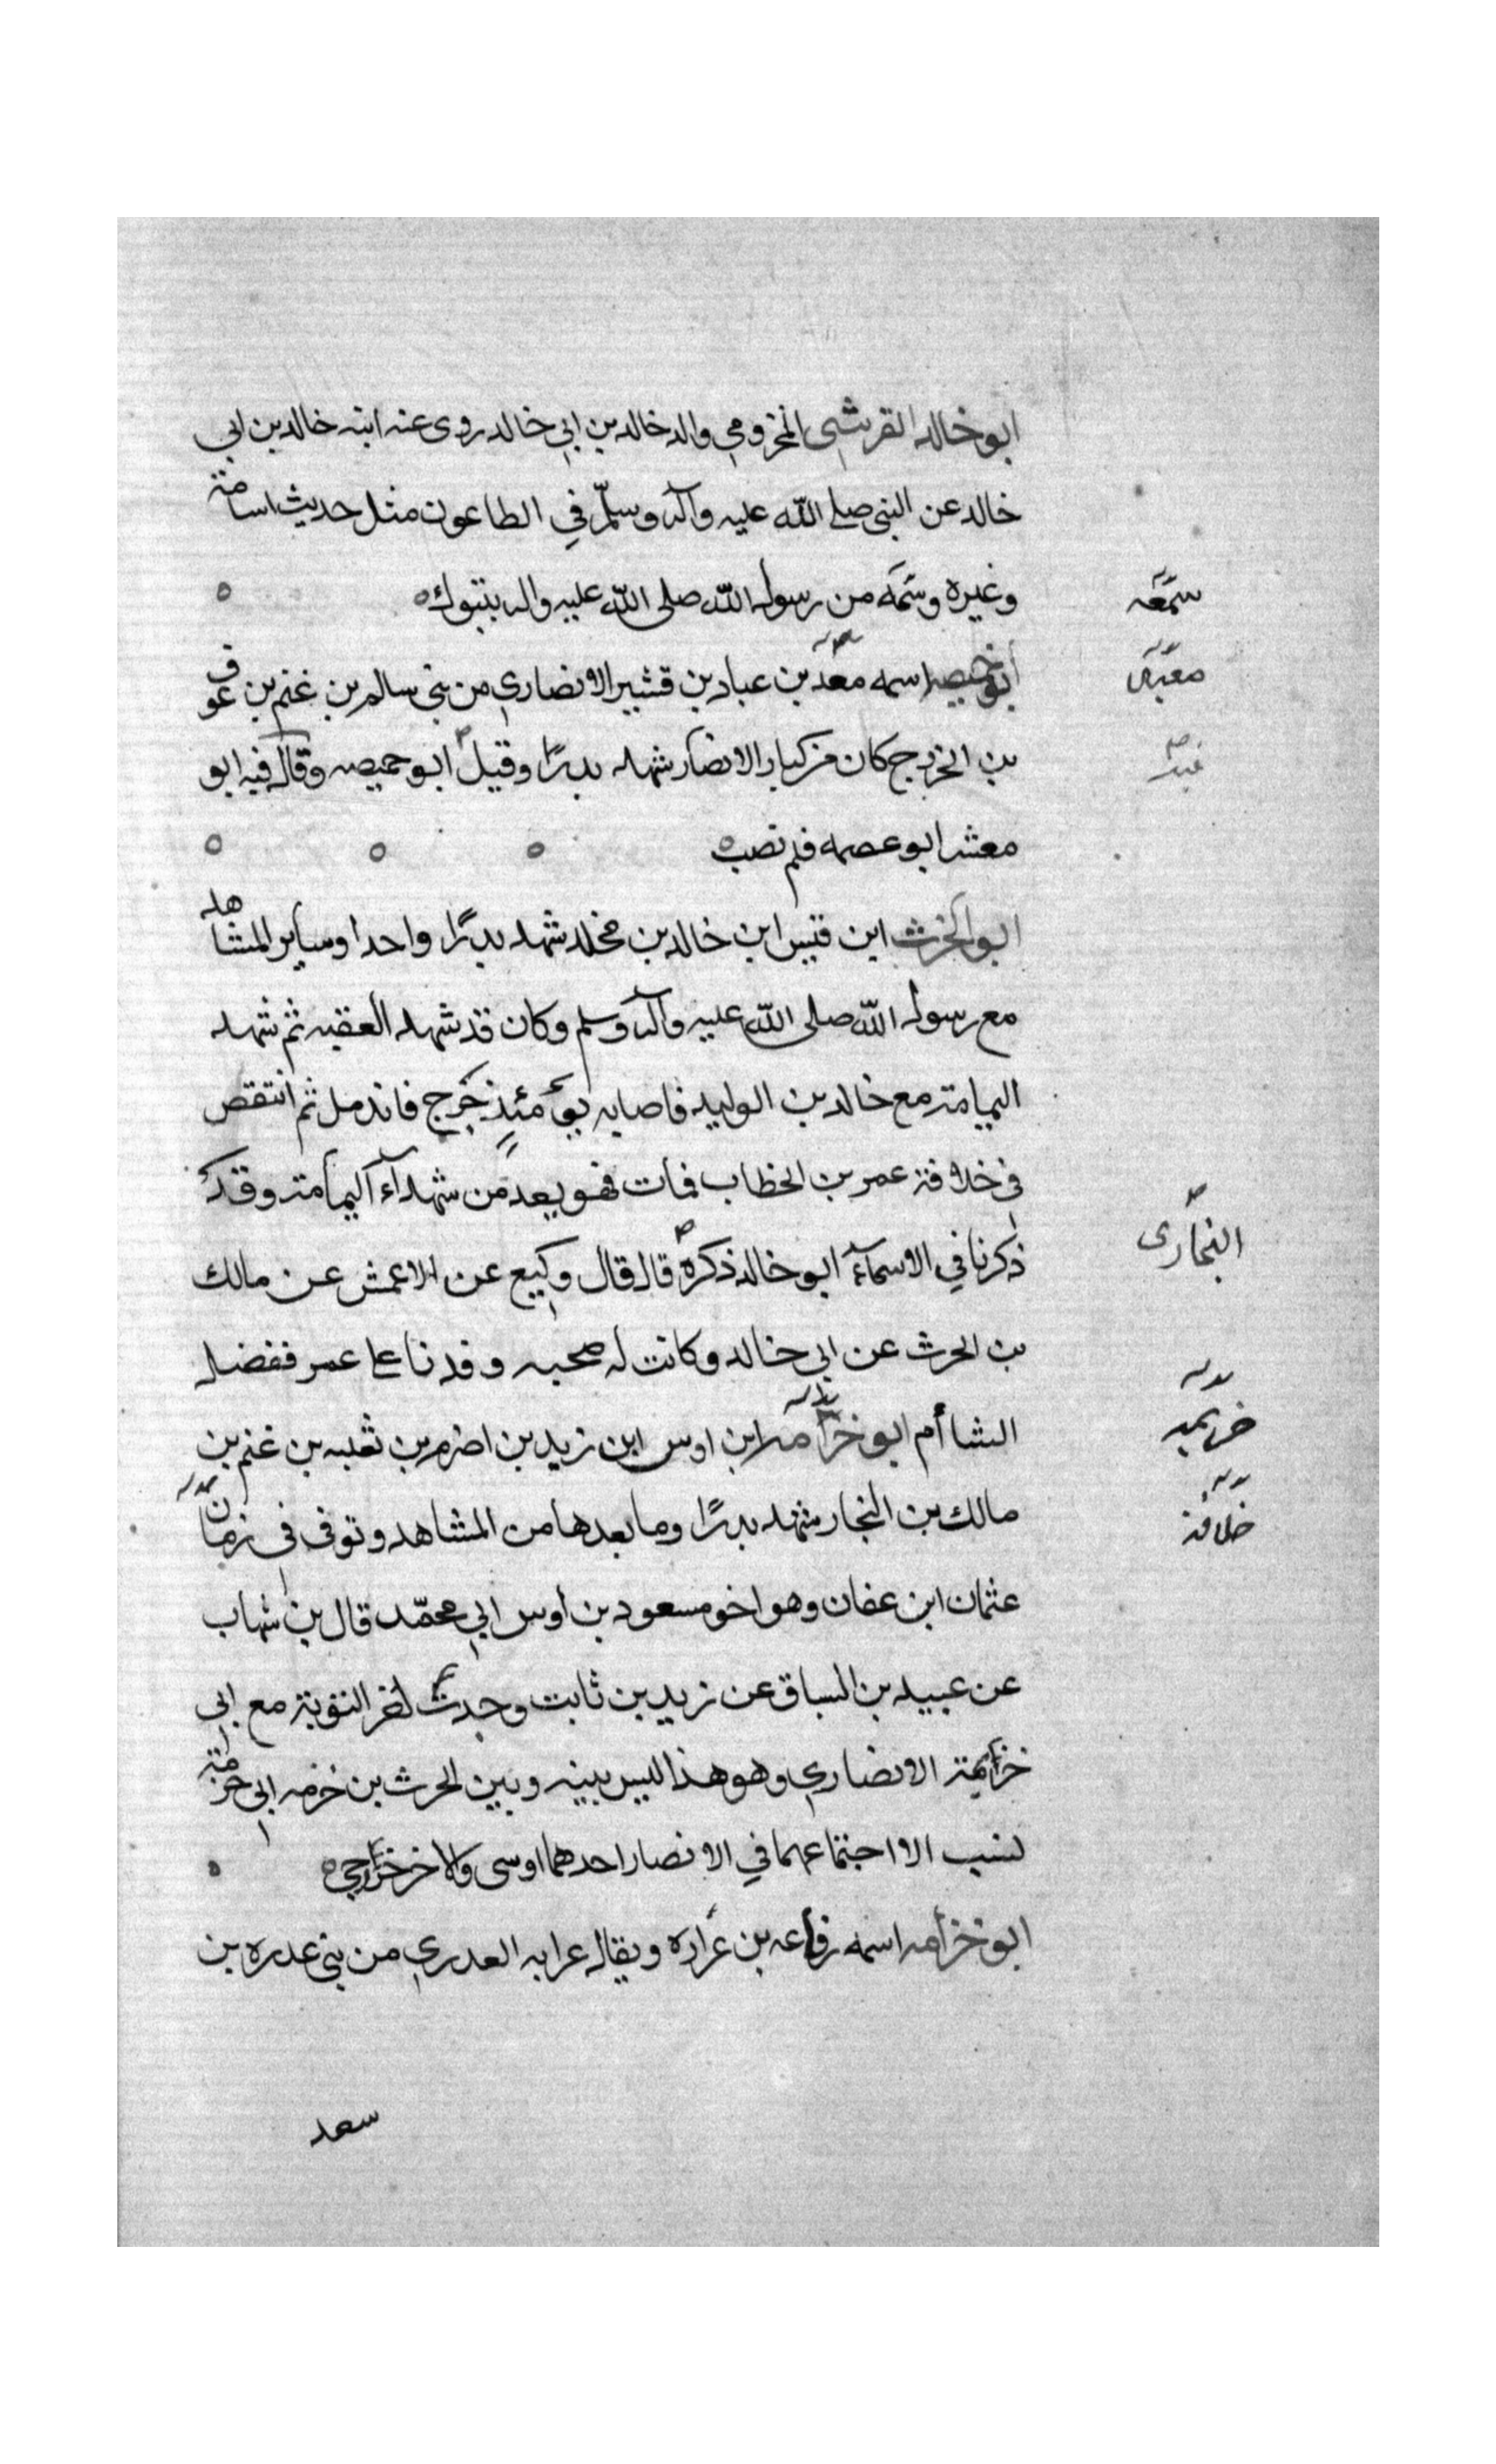 ابو خالد القرشى المخزومي والد خالد بن ابي خالد روى عنه ابنه خالد بن ابي
خالد عن النبى صلى الله عليه وآله وسلم في الطاعون مثل حديث اسامة
وغيره وسمه من رسول الله صلى الله عليه واله بتبوك
سمعه
أبو خميصه اسمه معد بن عباد بن قشير الانصاري من بنى سالم بن غنم بن عوف
معبد
بن الخزرج كان من كبار الانصار شهد بدرًا وقيل ابو حميصه وقال فيه ابو
معشر ابو عصمه فلم تصب
ابو الحرث ابن قيس ابن خالد بن مخلد شهد بدرًا واحدا وساير المشاهد
مع رسول الله صلى الله عليه وآله وسلم وكان قد شهد العقبه ثم شهد
اليمامة مع خالد بن الوليد فاصابه يومئذٍ جرح فاندمل ثم انتقض
فى خلافة عمر بن الخطاب فمات فهو يعد من شهدآء اليمامة وقد
ذكرنا في الاسمآء ابو خالد ذكره قال قال وكيع عن الاعمش عن مالك
النجارى
بن الحرث عن ابي خالد وكانت له صحبه وفدنا على عمر ففضل
الشام ابو خزامه ابن اوس ابن زيد بن اصرم بن ثعلبه بن غنم بن
خزيمه
مالك بن النجار شهد بدرًا وما بعدها من المشاهد وتوفى فى زمان
خلافة
عثمان ابن عفان وهو اخو مسعود بن اوس ابي محمّد قال بن شهاب
عن عبيد بن السباق عن زيد بن ثابت وجدت اخر التوبة مع ابي
خزيمة الانصاري وهو هذا ليس بينه وبين الحرث بن خزمه ابي خزمة
نسب الا اجتماعهما في الانصار احدهما اوسى والاخر خزرجي
ابو خزامه اسمه رفاعه بن عراده ويقال عرابه العدري من بنى عدره بن
سعد